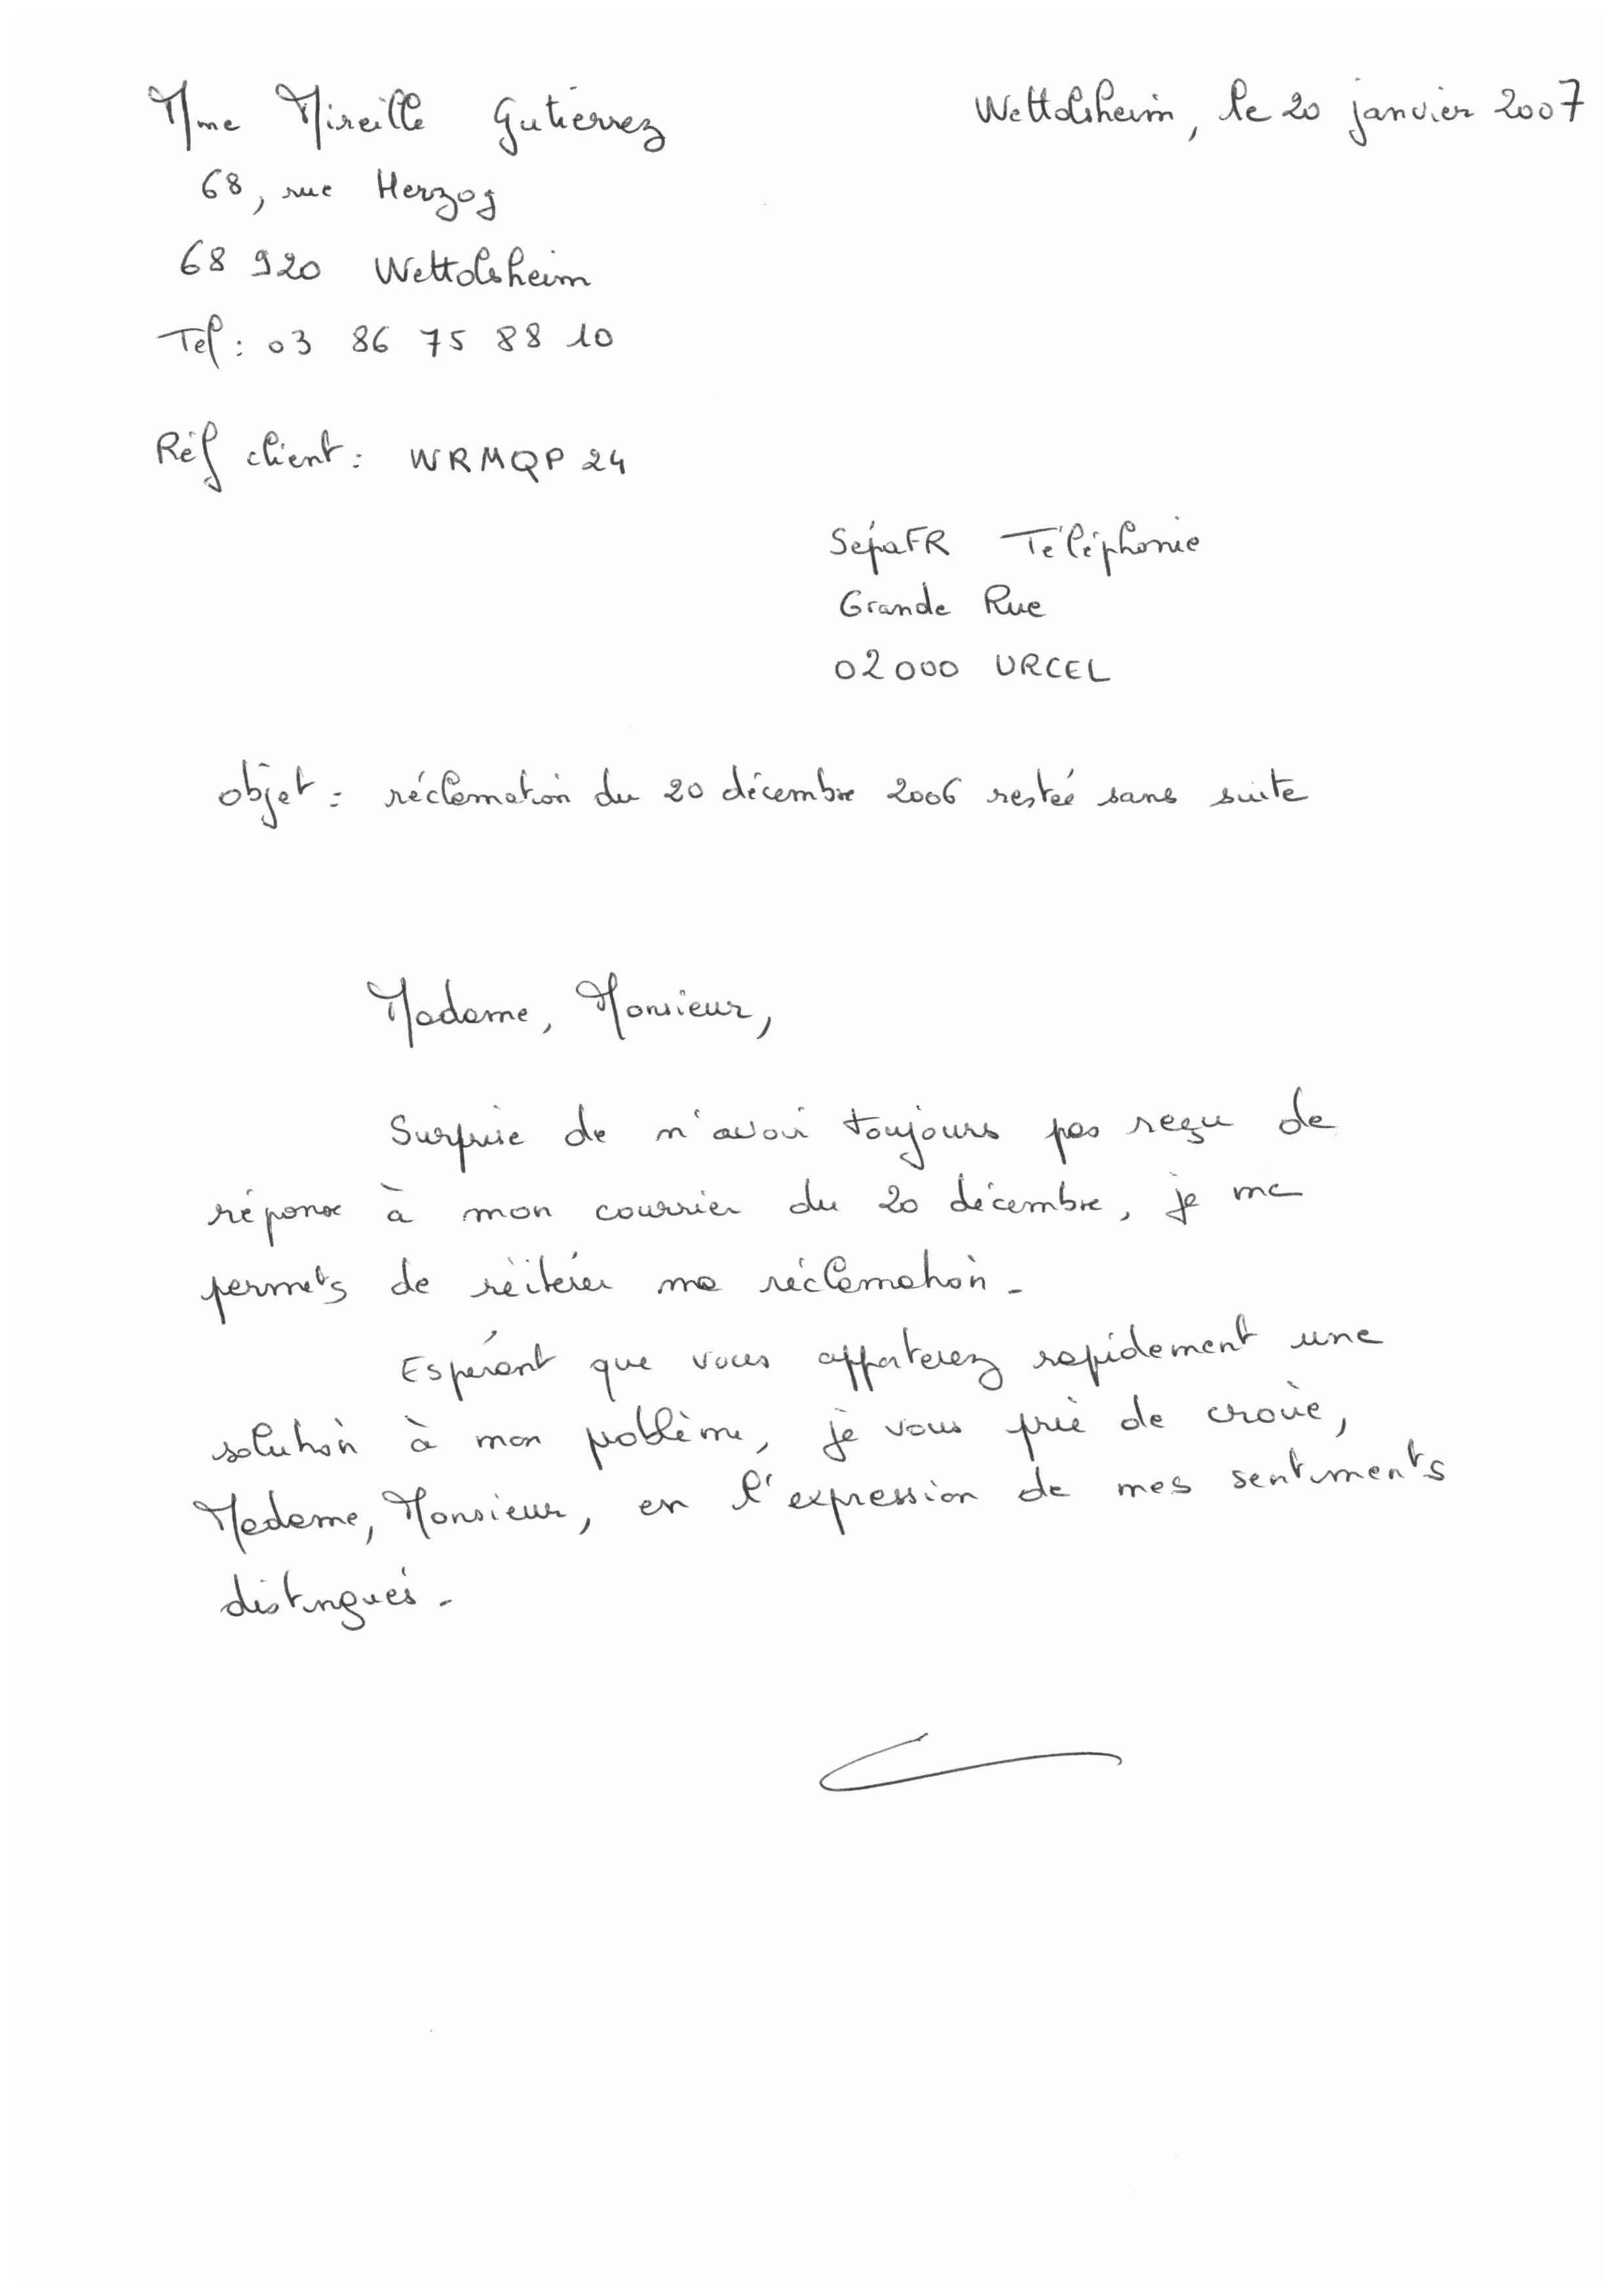 Mme Mireille Gutierrez
Wettolsheim, le 20 janvier 2007
68, rue Herzog
68 920 Wettolsheim
Tel : 03 86 75 88 10
Réf client : WRMQP 24
SépaFR Téléphonie
Grande Rue
02 000 URCEL
objet : réclamation du 20 décembre 2006 restée sans suite
Madame, Monsieur,
Surprise de n'avoir toujours pas reçu de
réponse à mon courrier du 20 décembre, je me
permets de réitérer ma réclamation.
Espérant que vous apporterez rapidement une
solution à mon problème, je vous prie de croire,
Madame, Monsieur, en l'expression de mes sentiments
distingués.